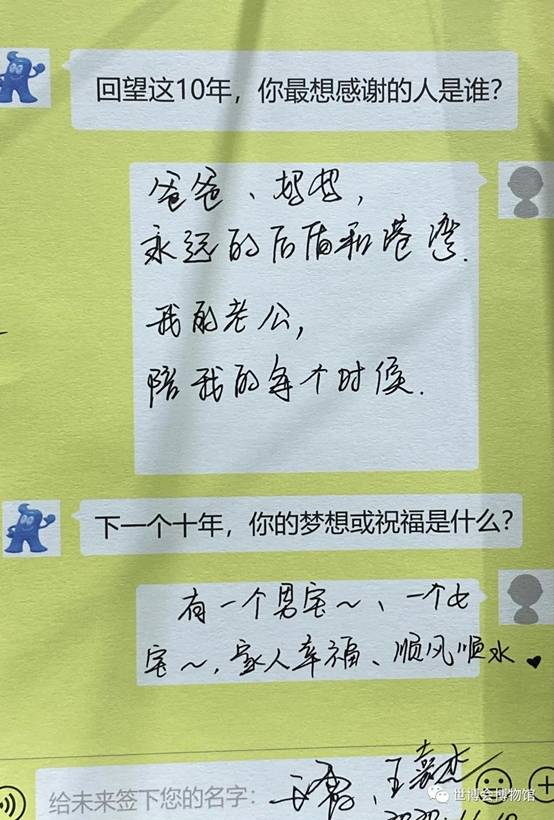 回望这10年，你最想感谢的人是谁？
爸爸、妈妈，
永远的后盾和港湾.
我的老公，
陪我的每个时候.
下一个十年，你的梦想或祝福是什么？
有一个男宝～、一个女
宝～，家人幸福、顺风顺水♥
给未来签下您的名字：
王嘉杰
世博会博物馆